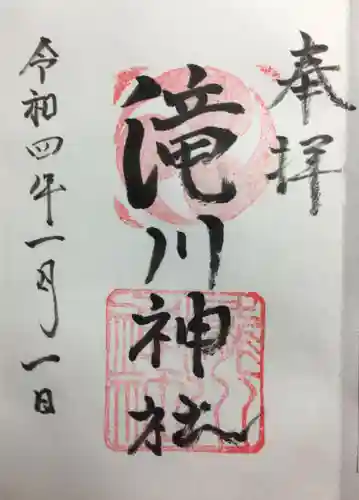 奉拝
滝川神社
令和四年一月一日